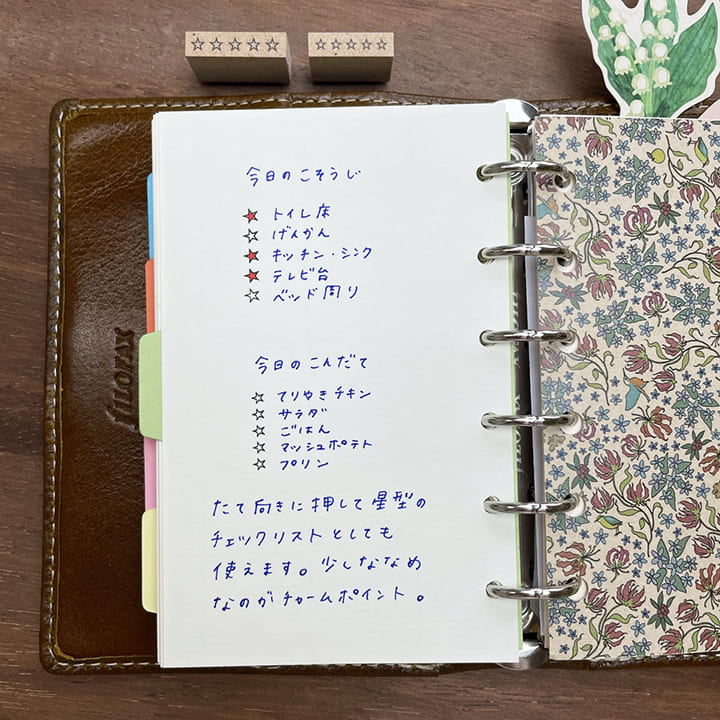 今日のこそうじ
トイレ床
げんかん
キッチン・シンク
テレビ台
ベッド周り
今日のこんだて
てりやきチキン
サラダ
ごはん
マッシュポテト
プリン
たて向きに押して星型の
チェックリストとしても
使えます。少しななめ
なのがチャームポイント。
filofax